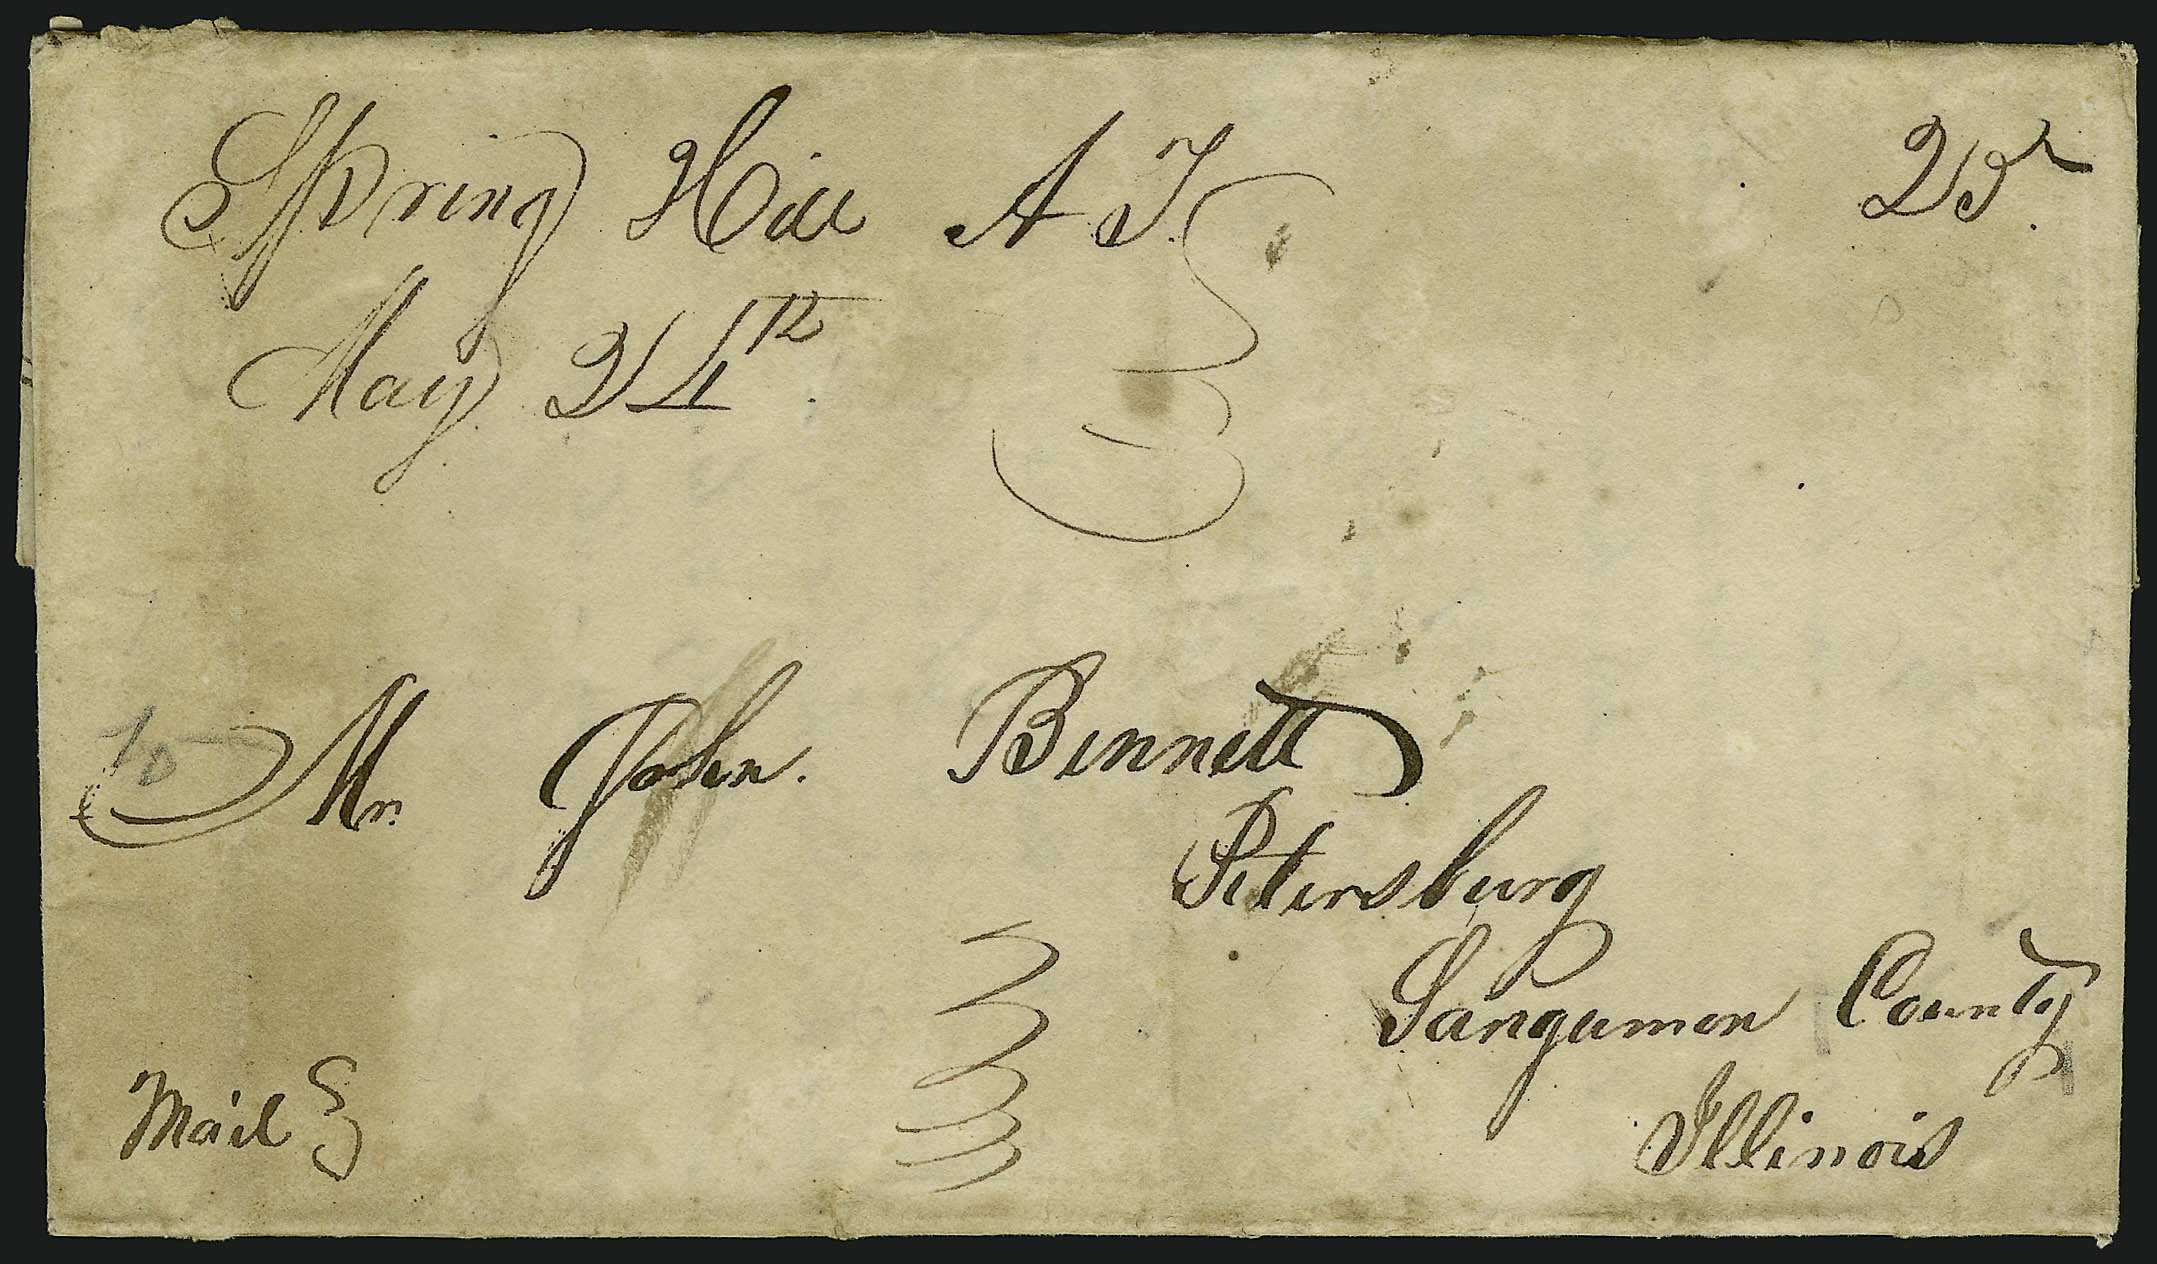 Spring Hill A T.
25
May 24th
To
Mr. John. Bennett
Petersburg
Sangamon County
Illinois
Mail